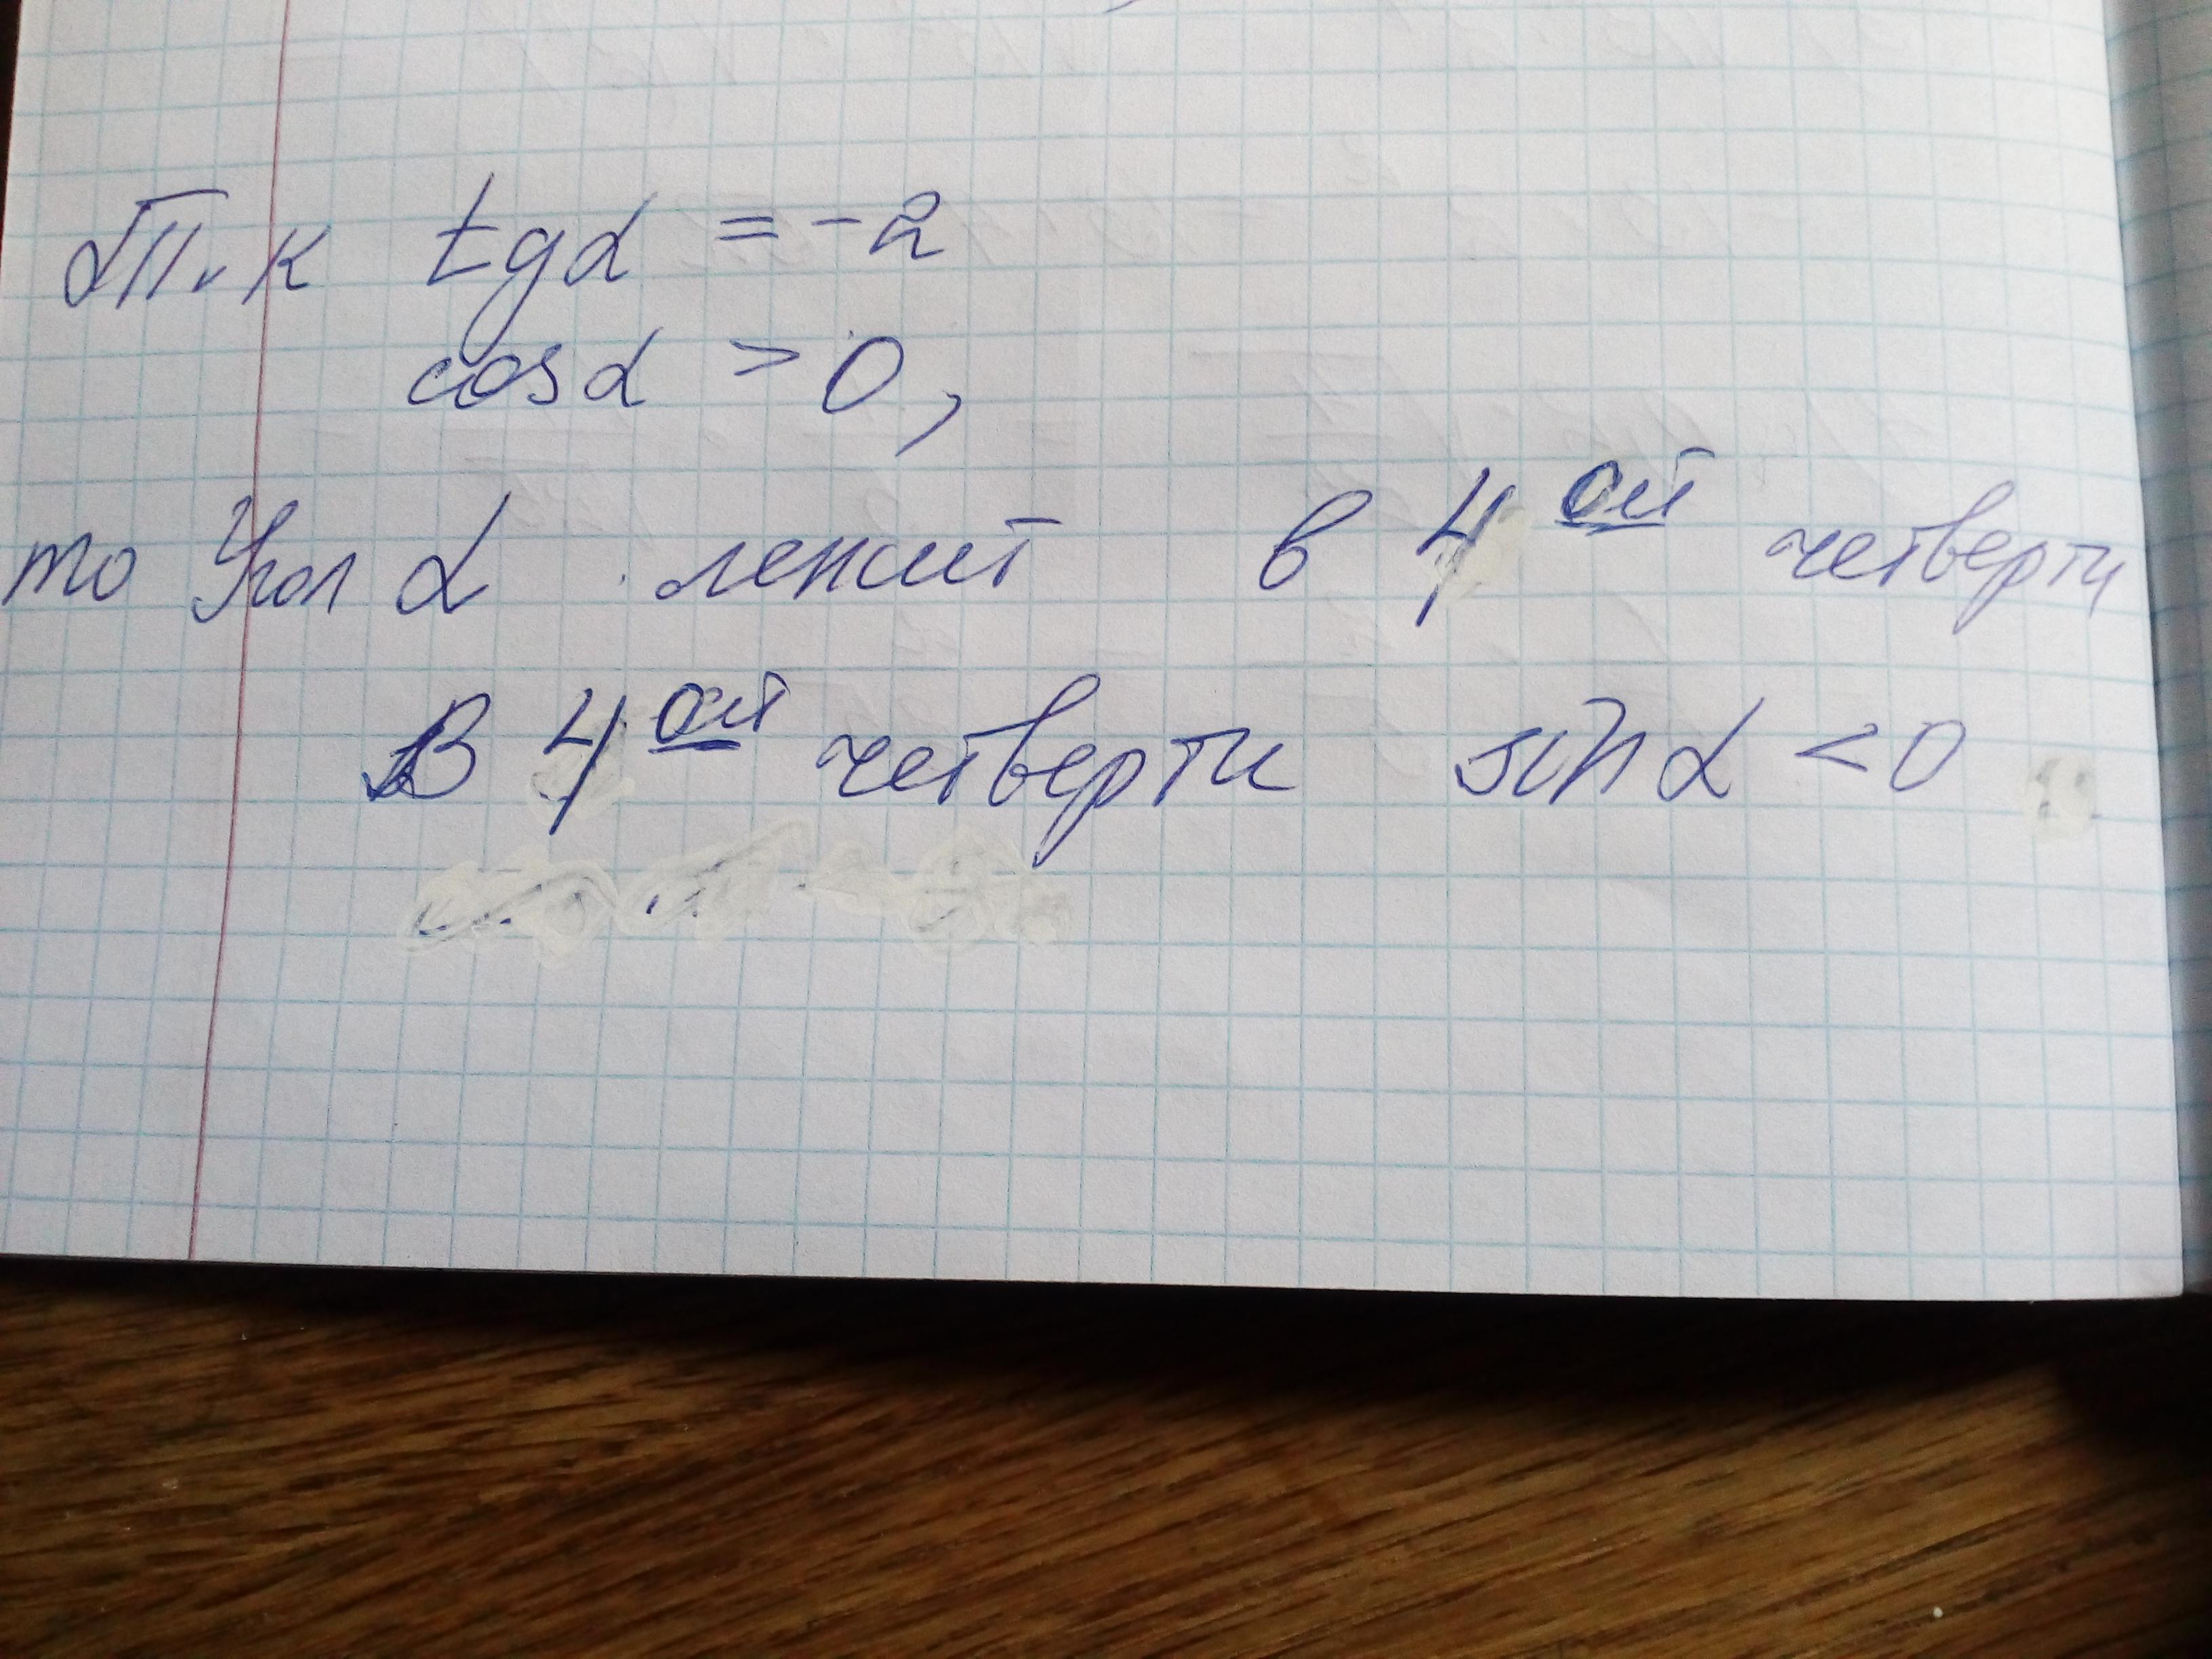 Т. к tgα = -2
cosα > 0,
то Угол α лежит в 4ой четверти
В 4ой четверти sinα < 0